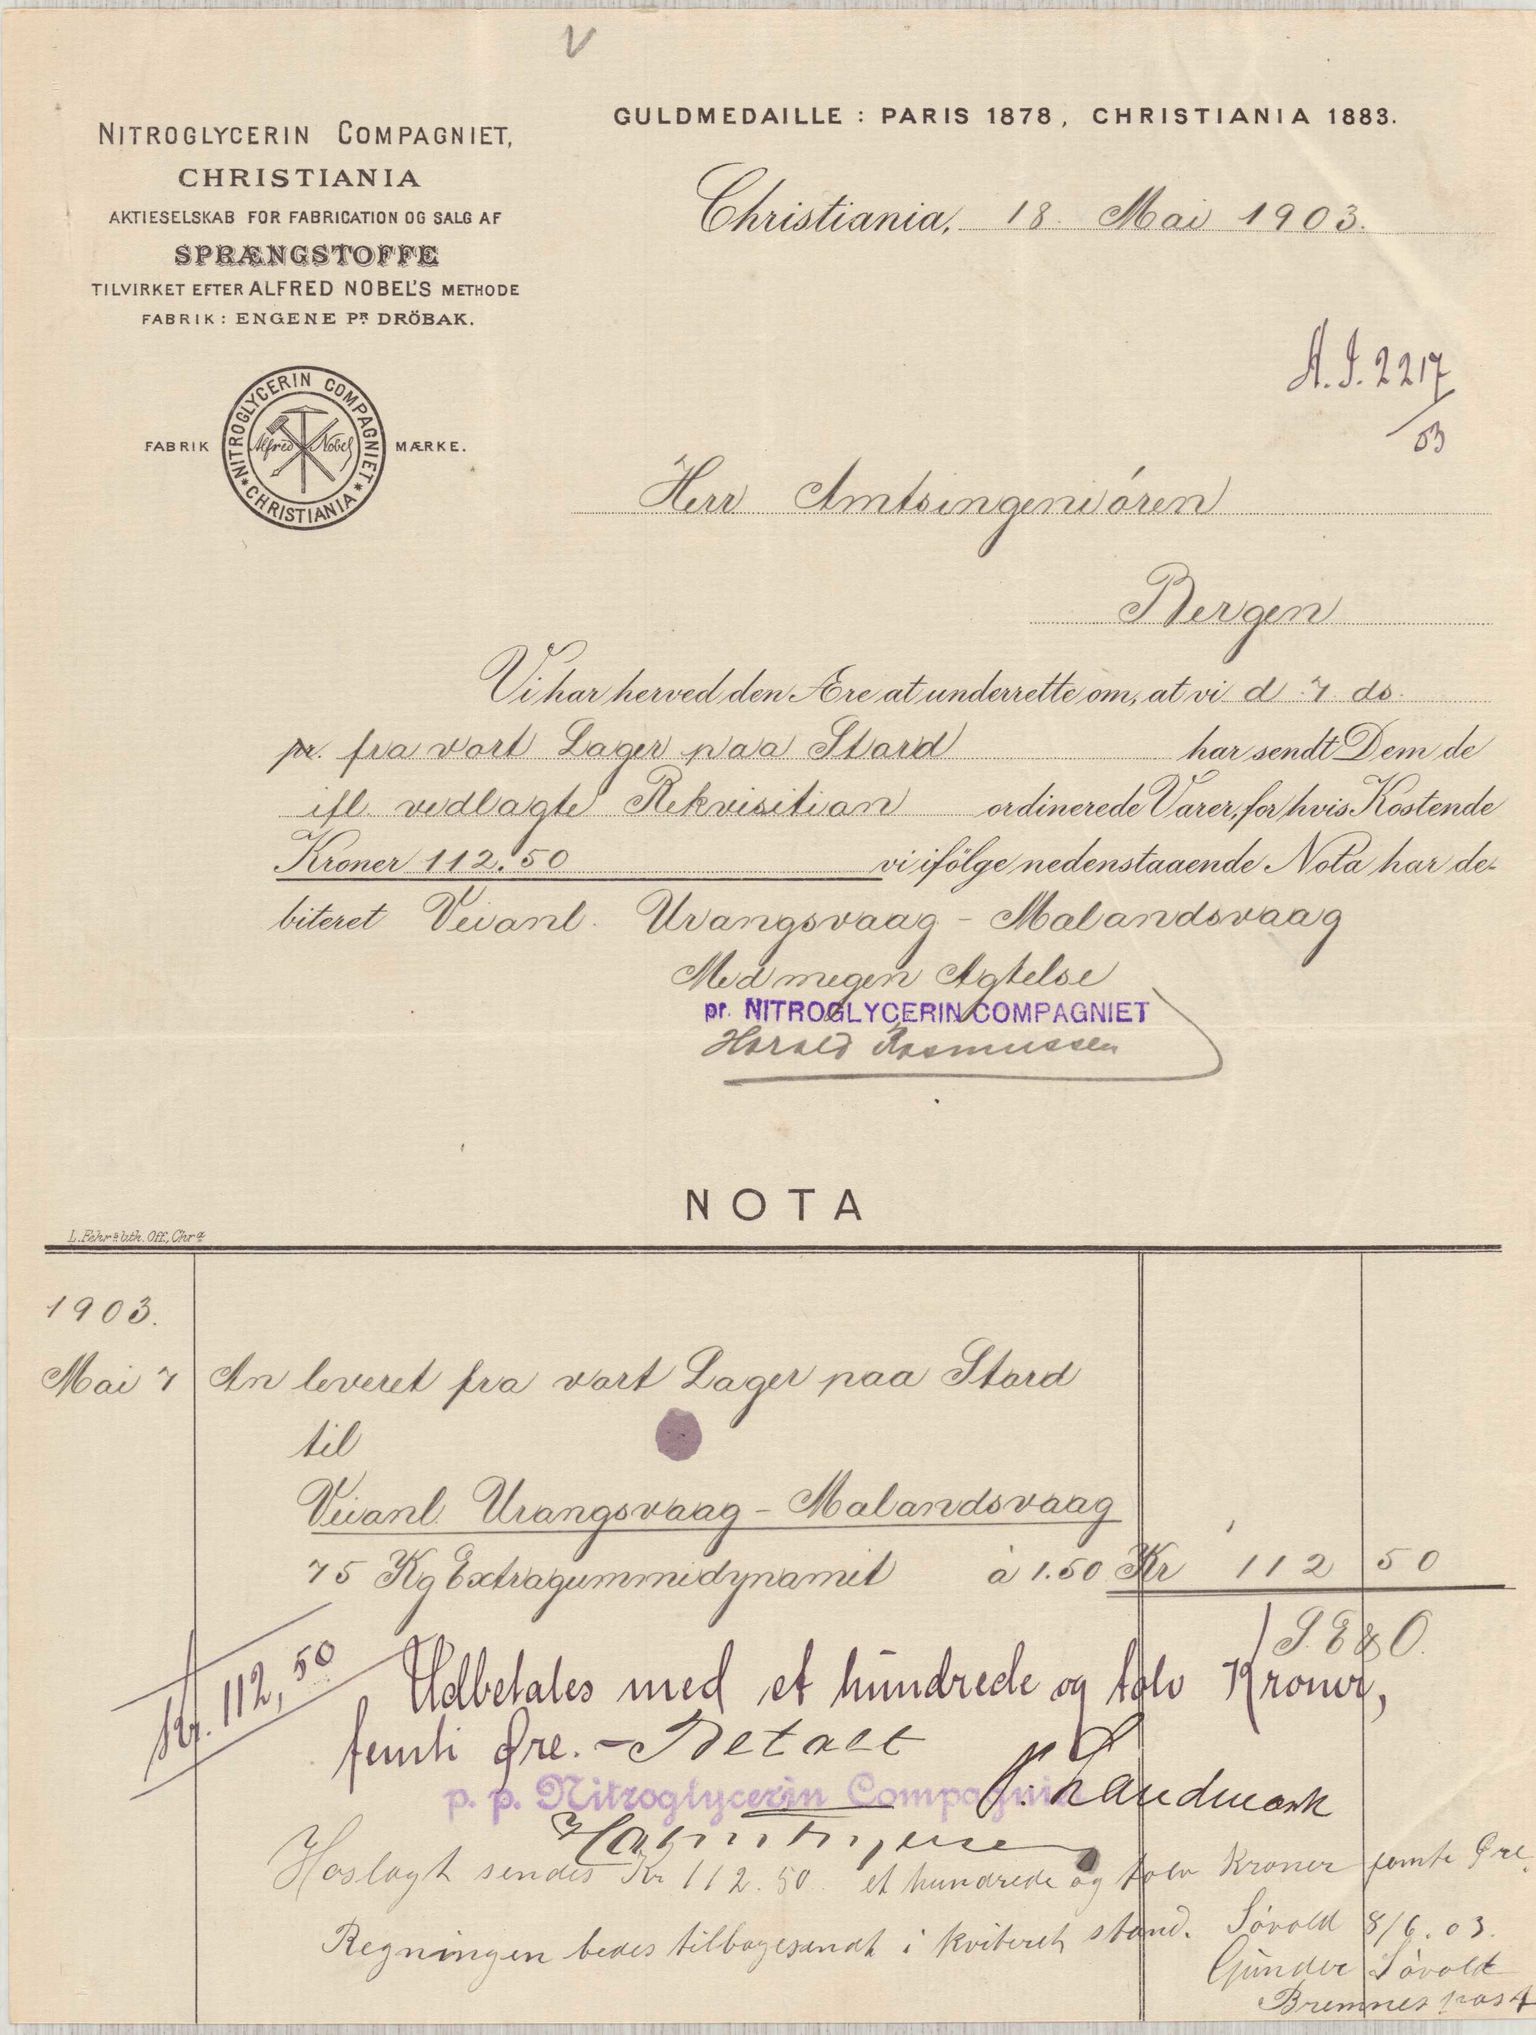 V
NITROGLYCERIN COMPAGNIET,
CHRISTIANIA
AKTIESELSKAB FOR FABRICATION OG SALG AF
SPRÆNGSTOFFE
TILVIRKET EFTER ALFRED NOBEL'S METHODE
FABRIK: ENGENE PR DRÖBAK.
FABRIK MÆRKE.
NITROGLYCERIN COMPAGNIET * CHRISTIANIA *
Alfred Nobel
GULDMEDAILLE: PARIS 1878, CHRISTIANIA 1883.
Christiania, 18. Mai 1903.
A.I. 2217
/03
Herr Amtsingeniören
Bergen
Vi har herved den Ære at underrette om, at vi d 7 ds.
pr. fra vort Lager paa Stord har sendt Dem de
ifl. vedlagte Rekvisition ordinerede Varer, for hvis Kostende
Kroner 112.50 vi ifölge nedenstaaende Nota har de-
biteret Veianl. Urangsvaag - Malandsvaag
Med megen Agtelse
pr. NITROGLYCERIN COMPAGNIET
Harald Rasmussen
NOTA
L. Fehr & lith. Off, Chra
1903.
Mai 7 An leveret fra vort Lager paa Stord
til
Veianl. Urangsvaag - Malandsvaag
75 Kg Extragummidynamit à 1.50 Kr 112 50
S. E & O.
Kr. 112,50
Udbetales med et hundrede og tolv Kroner,
femti Øre. - Betalt
p. p. Nitroglycerin Compagnie
J. Landmark
Hoslagt sendes Kr 112.50 et hundrede og tolv Kroner femti Øre.
Regningen bedes tilbagesendt i kviteret stand. Søvold 8/6.03.
Gunder Søvold
Bremnes post